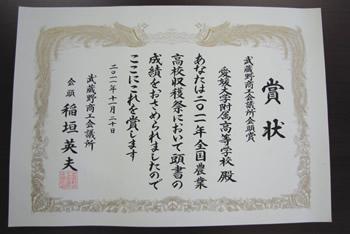 賞状
武蔵野商工会議所会頭賞
愛媛大学附属高等学校 殿
あなたは二〇一一年全国農業
高校収穫祭において頭書の
成績をおさめられましたので
ここにこれを賞します
二〇一一年十一月二十日
武蔵野商工会議所
会頭 稲垣英夫